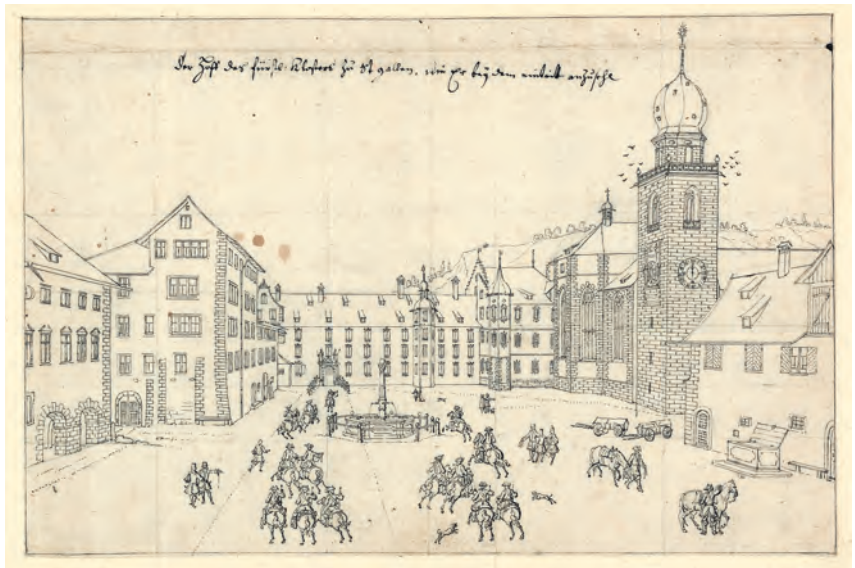 Der Hoff des fürstl: Closters zu St gallen, wie Er bey dem eintrit anzusehe